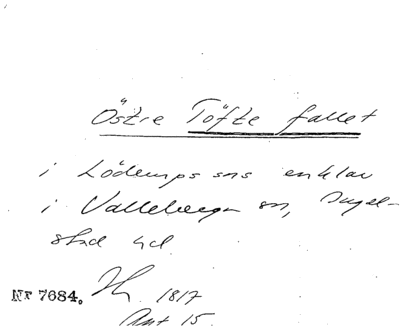 Östre Töfte fallet
i Löderups sns enklav
i Valleberga sn, Ingel-
stad hd
Nr 7684. 1817
Akt 15.